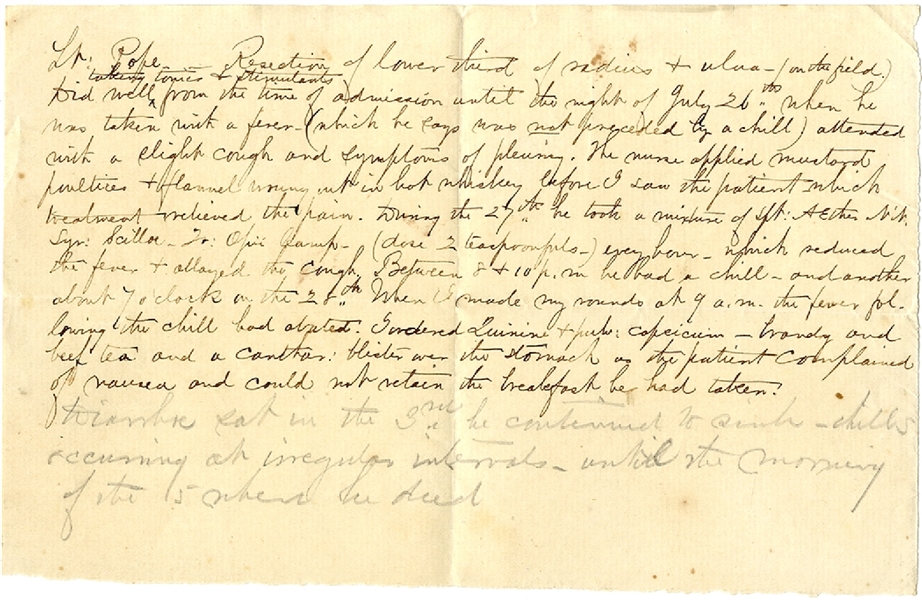 Lt. Pope Resection of lower third of radius + ulna - (on the field.)
taking tonics & stimulants
Did well ^ from the time of admission until the night of July 26th when he
was taken with a fever - (which he says was not preceded by a chill) attended
with a slight cough and symptoms of pleurisy. The nurse applied mustard
poultices + flannel wrung out in hot whiskey before I saw the patient which
treatment relieved the pain. During the 27th he took a mixture of Spt: AEther Nit:
Syr: Scillae - Tr: Opii Camp - (dose 2 teaspoonfuls -) every hour - which reduced
the fever + allayed the cough. Between 8 + 10 p.m he had a chill - and another
about 7 o'clock on the 28th. When I made my rounds at 9 a.m. the fever fol-
lowing the chill had abated. I ordered Quinine + pulv: capsicum - brandy and
beef tea and a canthar: blister over the stomach as the patient complained
of nausea and could not retain the breakfast he had taken.
Diarrhæ sat in the 3rd he continued to sink - chills
occurring at irregular intervals - until the morning
of the 5 when he died